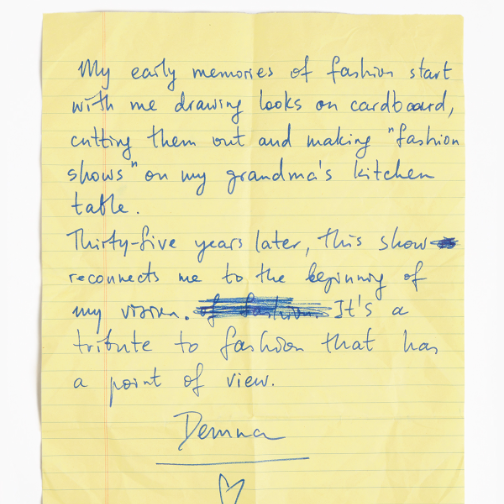 My early memories of fashion start
with me drawing looks on cardboard,
cutting them out and making "fashion
shows" on my grandma's kitchen
table.
Thirty-five years later, this show
reconnects me to the beginning of
my vision. It's a
tribute to fashion that has
a point of view.
Demna